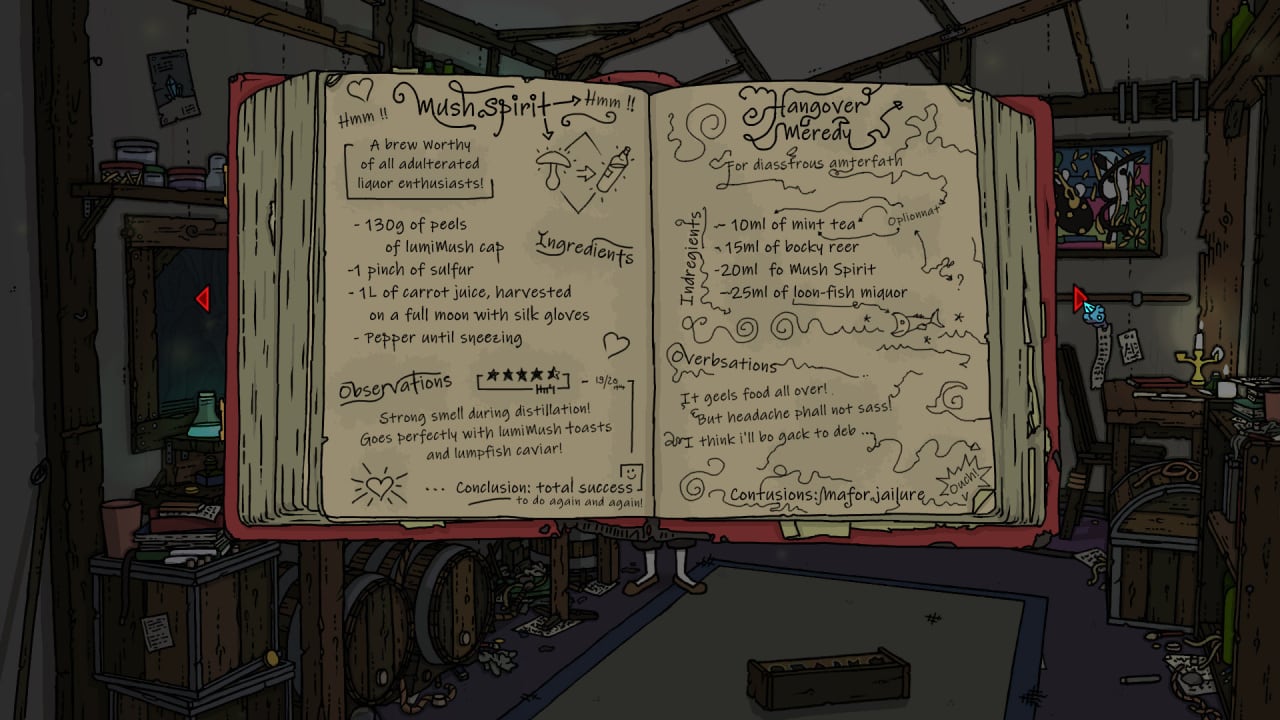 Hmm !!
Mush Spirit
Hmm !!
A brew worthy
of all adulterated
liquor enthusiasts!
Ingredients
- 130g of peels
of lumiMush cap
-1 pinch of sulfur
- 1L of carrot juice, harvested
on a full moon with silk gloves
- Pepper until sneezing
Observations
- 19/20
Strong smell during distillation!
Goes perfectly with lumiMush toasts
and lumpfish caviar!
... Conclusion: total success
to do again and again!
Hangover
Meredy
For diasstrous amterfath
Indregients
- 10ml of mint tea
Oplionnat
- 15ml of bocky reer
-20ml fo Mush Spirit
-25ml of loon-fish miquor
?
Overbsations
It geels food all over!
But headache phall not sass!
I think i'll bo gack to deb ...
Ouch!
Contusions: mafor jailure